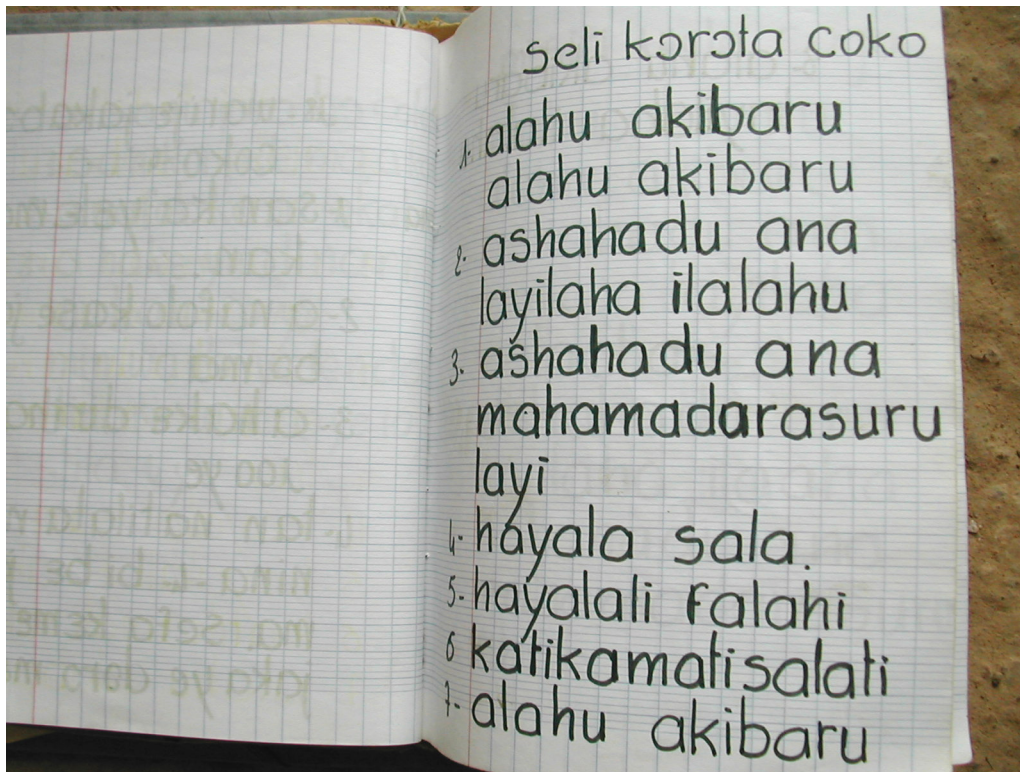 seli kɔrɔta coko
1- alahu akibaru
alahu akibaru
2- ashahadu ana
layilaha ilalahu
3- ashahadu ana
mahamadarasuru
layi
4- hayala sala.
5- hayalali falahi
6 katikamatisalati
7- alahu akibaru